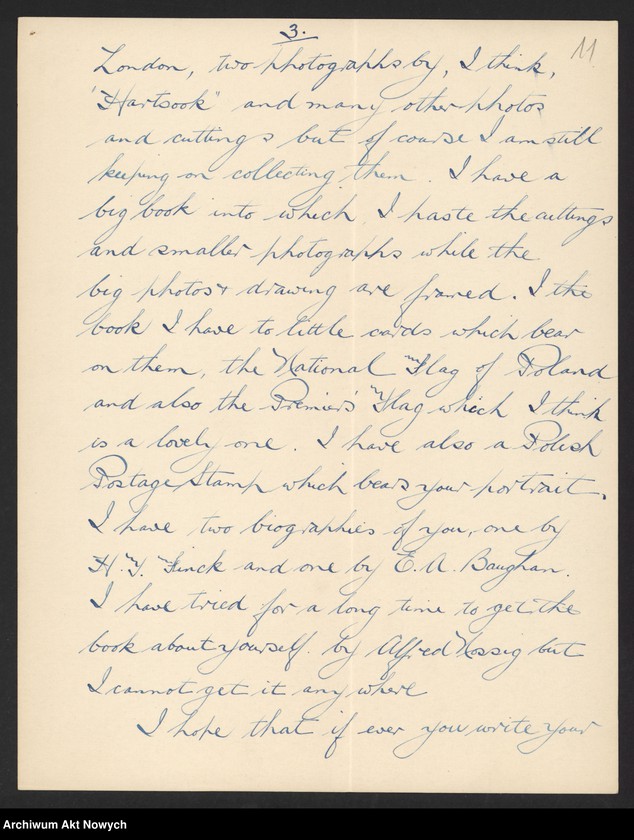 3.
11
London, two photographs by, I think,
"Hartsook" and many other photos
and cuttings but of course I am still
keeping on collecting them. I have a
big book into which I paste the cuttings
and smaller photographs while the
big photos & drawing are framed. I the
book I have to little cards which bear
on them, the National Flag of Poland
and also the Premier's Flag which I think
is a lovely one. I have also a Polish
Postage Stamp which bears your portrait.
I have two biographies of you, one by
H. T. Finck and one by E. A. Baughan.
I have tried for a long time to get the
book about yourself by Alfred Nossig but
I cannot get it any where
I hope that if ever you write your
Archiwum Akt Nowych